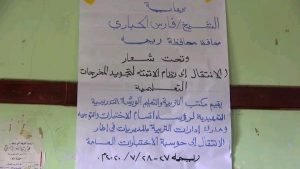 برعاية
الشيخ/فارس الحباري
محافظ محافظة ريمة
وتحت شعار
(الانتقال إلى نظام الاتمتة لتجويد المخرجات
التعليمية
يقيم مكتب التربية والتعليم الورشة التدريبية
التمهيدية لمرؤساء أقسام الاختبارات والتوجيه
ومدراء إدارات التربية بالمديريات في إطار
الانتقال إلى حوسبة الاختبارات العامة
ريمة ٢٧-٢٨/٧/٢٠٢٠م